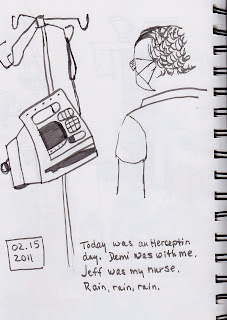 02.15
2011
Today was an Herceptin
day. Demi was with me.
Jeff was my nurse.
Rain, rain, rain.